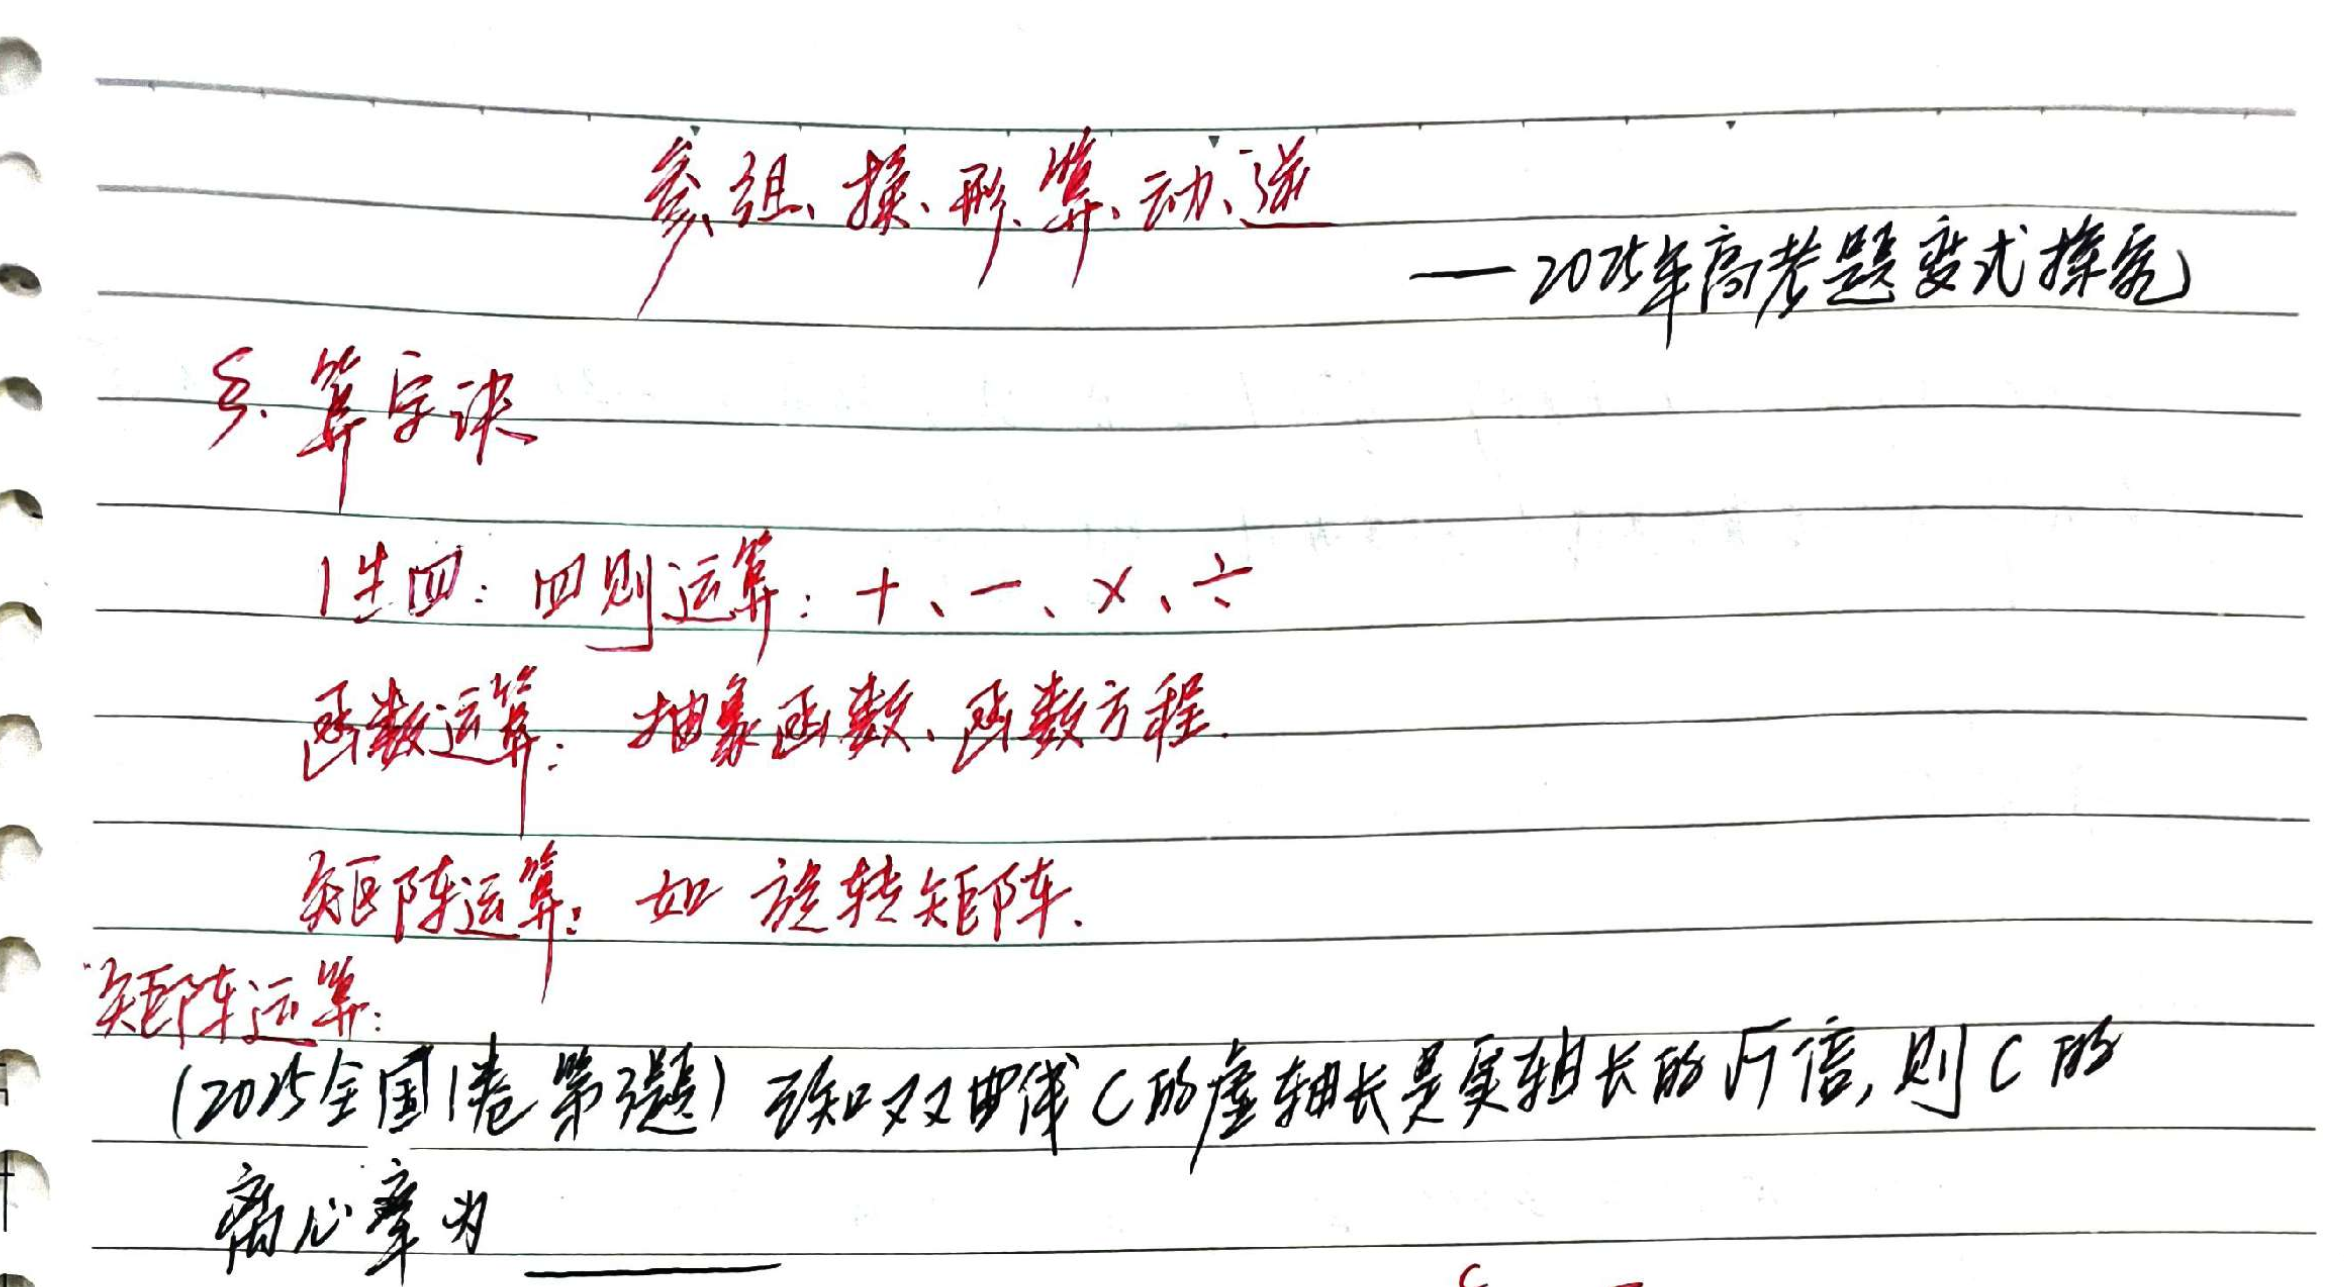 参、组、换、形、算、动、逆
——2025年高考题变式探究
§. 算字诀
1生四：四则运算：+、-、×、÷
函数运算：抽象函数、函数方程.
矩阵运算：如 旋转矩阵.
矩阵运算：
(2025全国1卷 第3题) 已知双曲线C的虚轴长是实轴长的√7倍, 则C的
离心率为